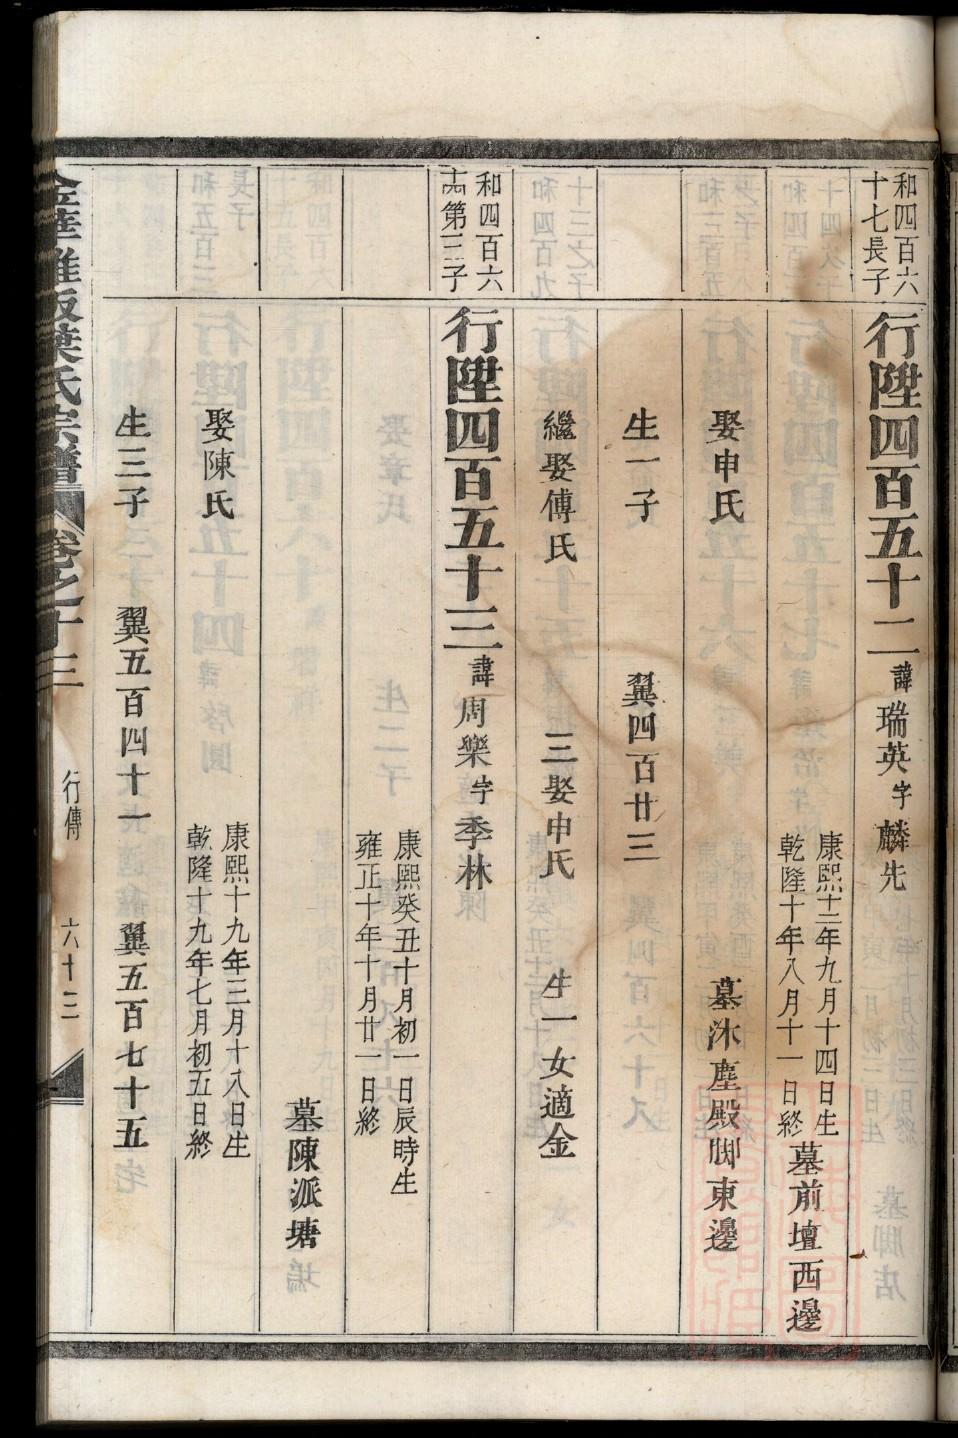 和四百六
十七長子
行陞四百五十二 諱瑞英 字麟先
康熙十二年九月十四日生
乾隆十年八月十一日終
墓前壇西邊
娶申氏
墓沐塵殿脚東邊
生一子 翼四百廿三
繼娶傅氏 三娶申氏 生一女適金
和四百六
十四第三子
行陞四百五十三 諱周樂 字季林
康熙癸丑十月初一日辰時生
雍正十年十月廿一日終
墓陳派塘
娶陳氏
康熙十九年三月十八日生
乾隆十九年七月初五日終
生三子 翼五百四十一 翼五百七十五
葉氏宗譜 卷之十三 行傳 六十三